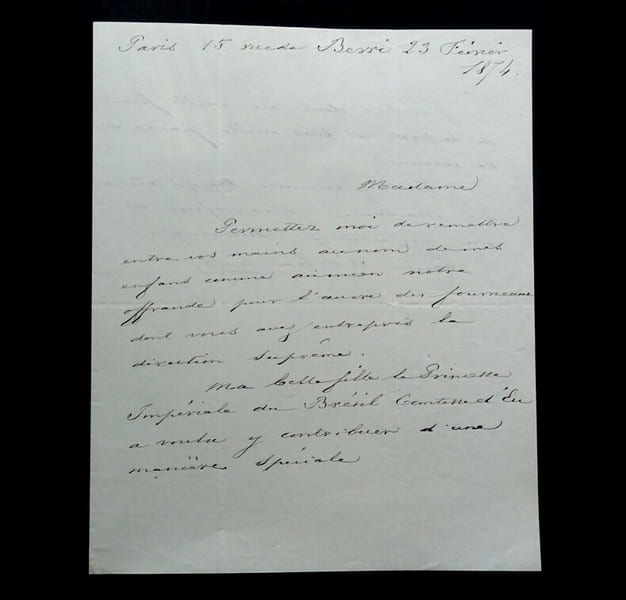 Paris 15 rue de Berri 23 Février
1874.
Madame
Permettez moi de remettre
entre vos mains au nom de mes
enfans comme au mien notre
offrande pour l'œuvre des fourneaux
dont vous avez entrepris la
direction suprême.
Ma belle fille la Princesse
Impériale du Brésil Comtesse d'Eu
a voulu y contribuer d'une
manière spéciale